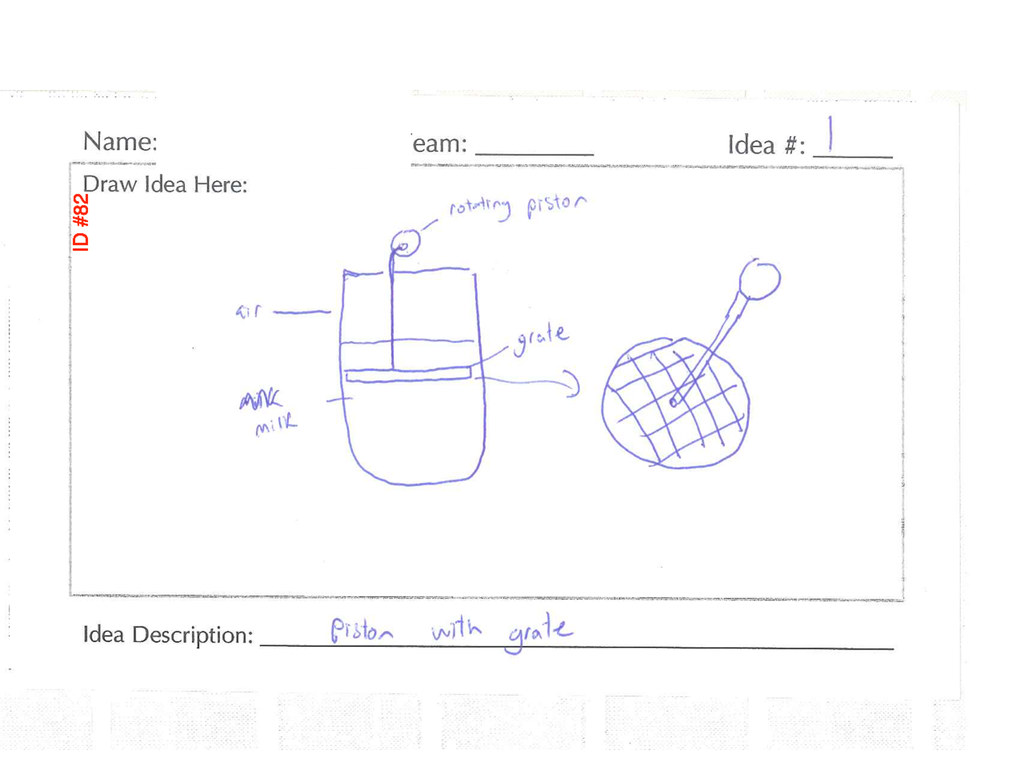 Name:
eam:
Idea #: 1
Draw Idea Here:
ID #82
rotating piston
air
grate
milk
milk
Idea Description: Piston with grate